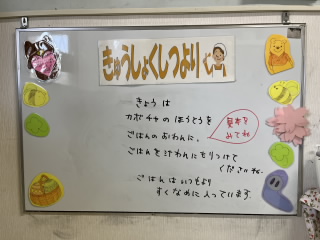 きゅうしょくしつより
きょうは
カボチャのほうとうを
ごはんのおわんに、
見本を
みてね
ごはんを汁わんにもりつけて
くださいね。
ごはんはいつもより
すくなめに入っています。